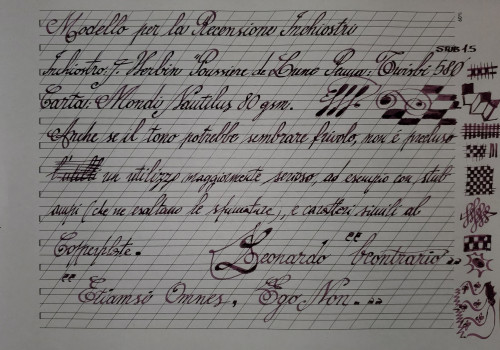 Modello per la Recensione Inchiostri
Stub 1.5
Inchiostro: J. Herbin "Poussière de Lune" Penna: Twisbi 580
Carta: Mondi Nautilus 80 gsm.
Anche se il tono potrebbe sembrare frivolo, non è precluso
un utilizzo maggiormente serioso, ad esempio con stub
ampi (che ne esaltano le sfumature), e caratteri simili al
Copperplate.
Leonardo "beontrario"
"Etiamsi Omnes, Ego Non."